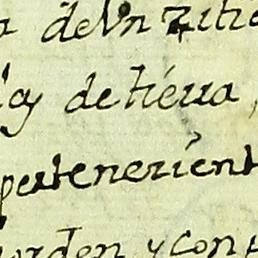 de Vn zitio
de tierra,
pertenezient
orden y con